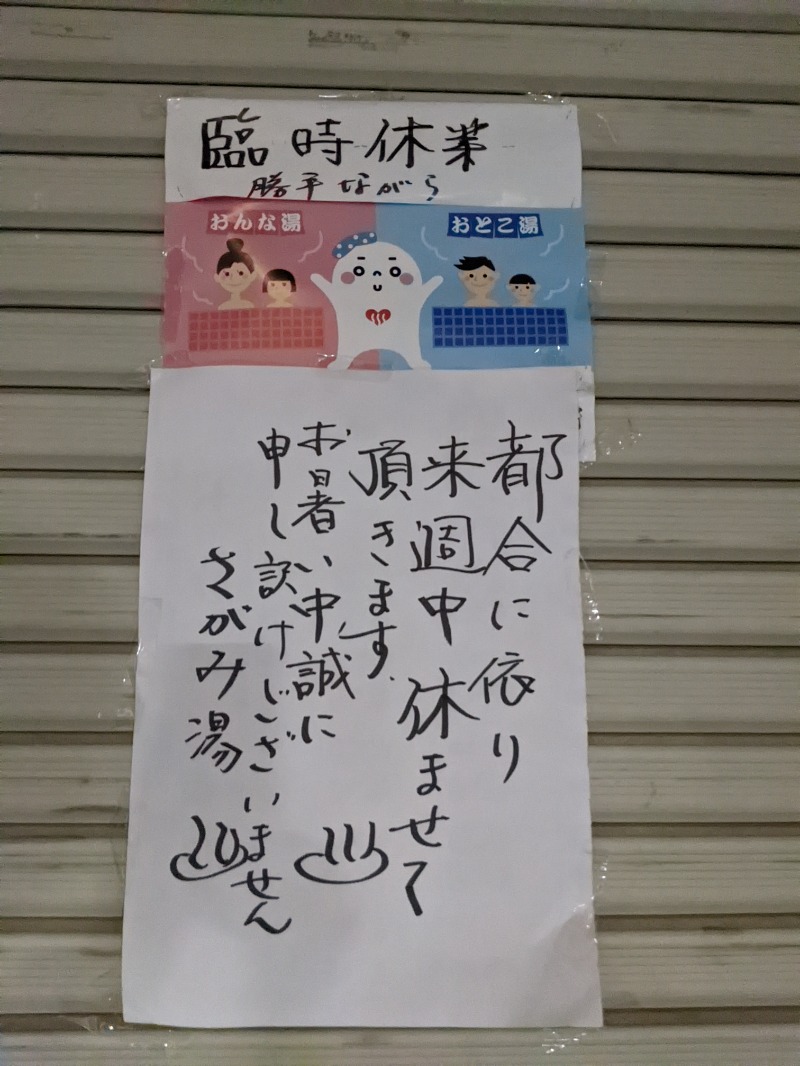 臨時休業
勝手ながら
おんな湯
おとこ湯
都合に依り
来週中休ませて
頂きます.
お暑い中誠に
申し訳けございません
さがみ湯